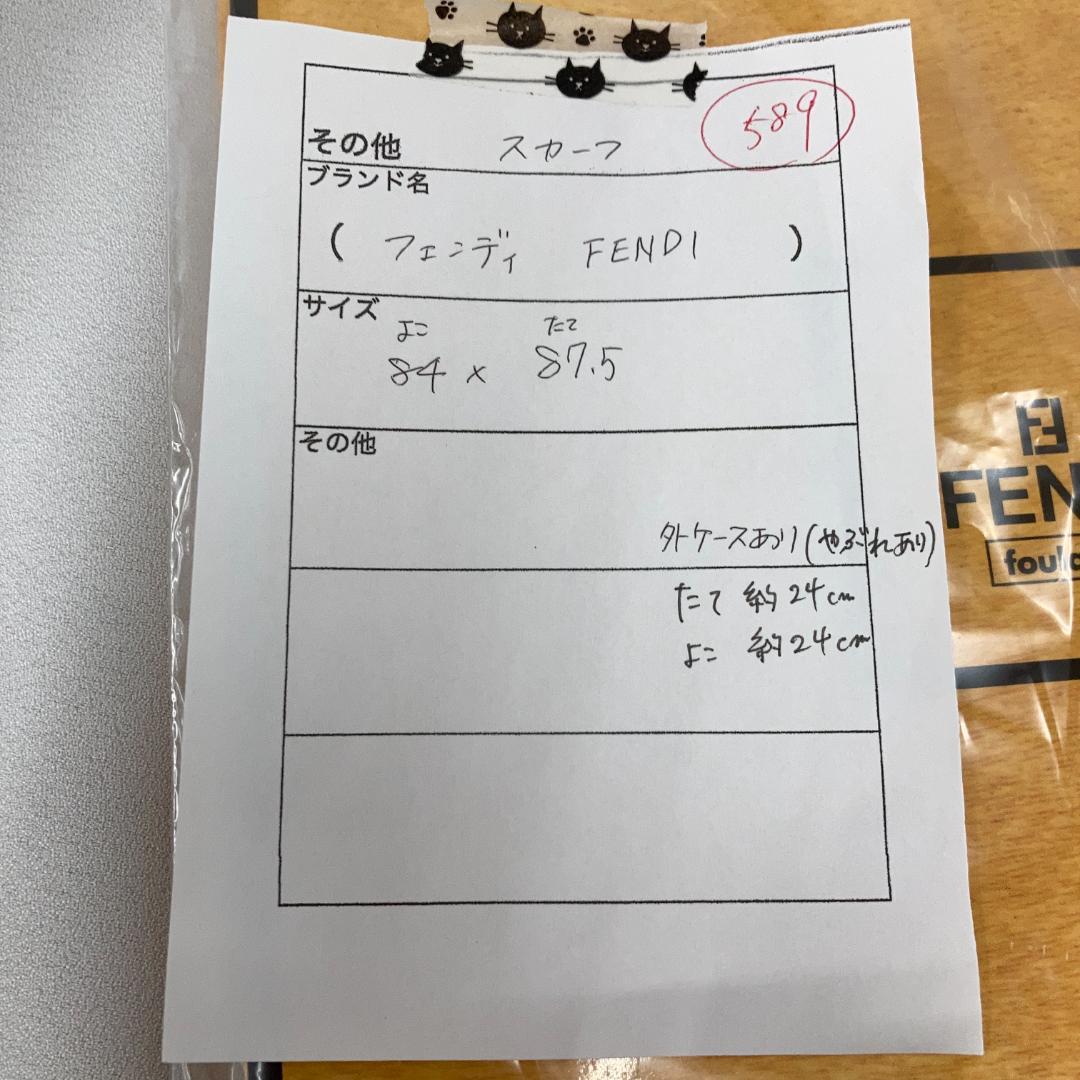 589
その他 スカーフ
ブランド名
( フェンディ FENDI )
サイズ
よこ たて
84 x 87.5
その他
外ケースあり(やぶれあり)
たて 約24cm
よこ 約24cm
FEN
foul